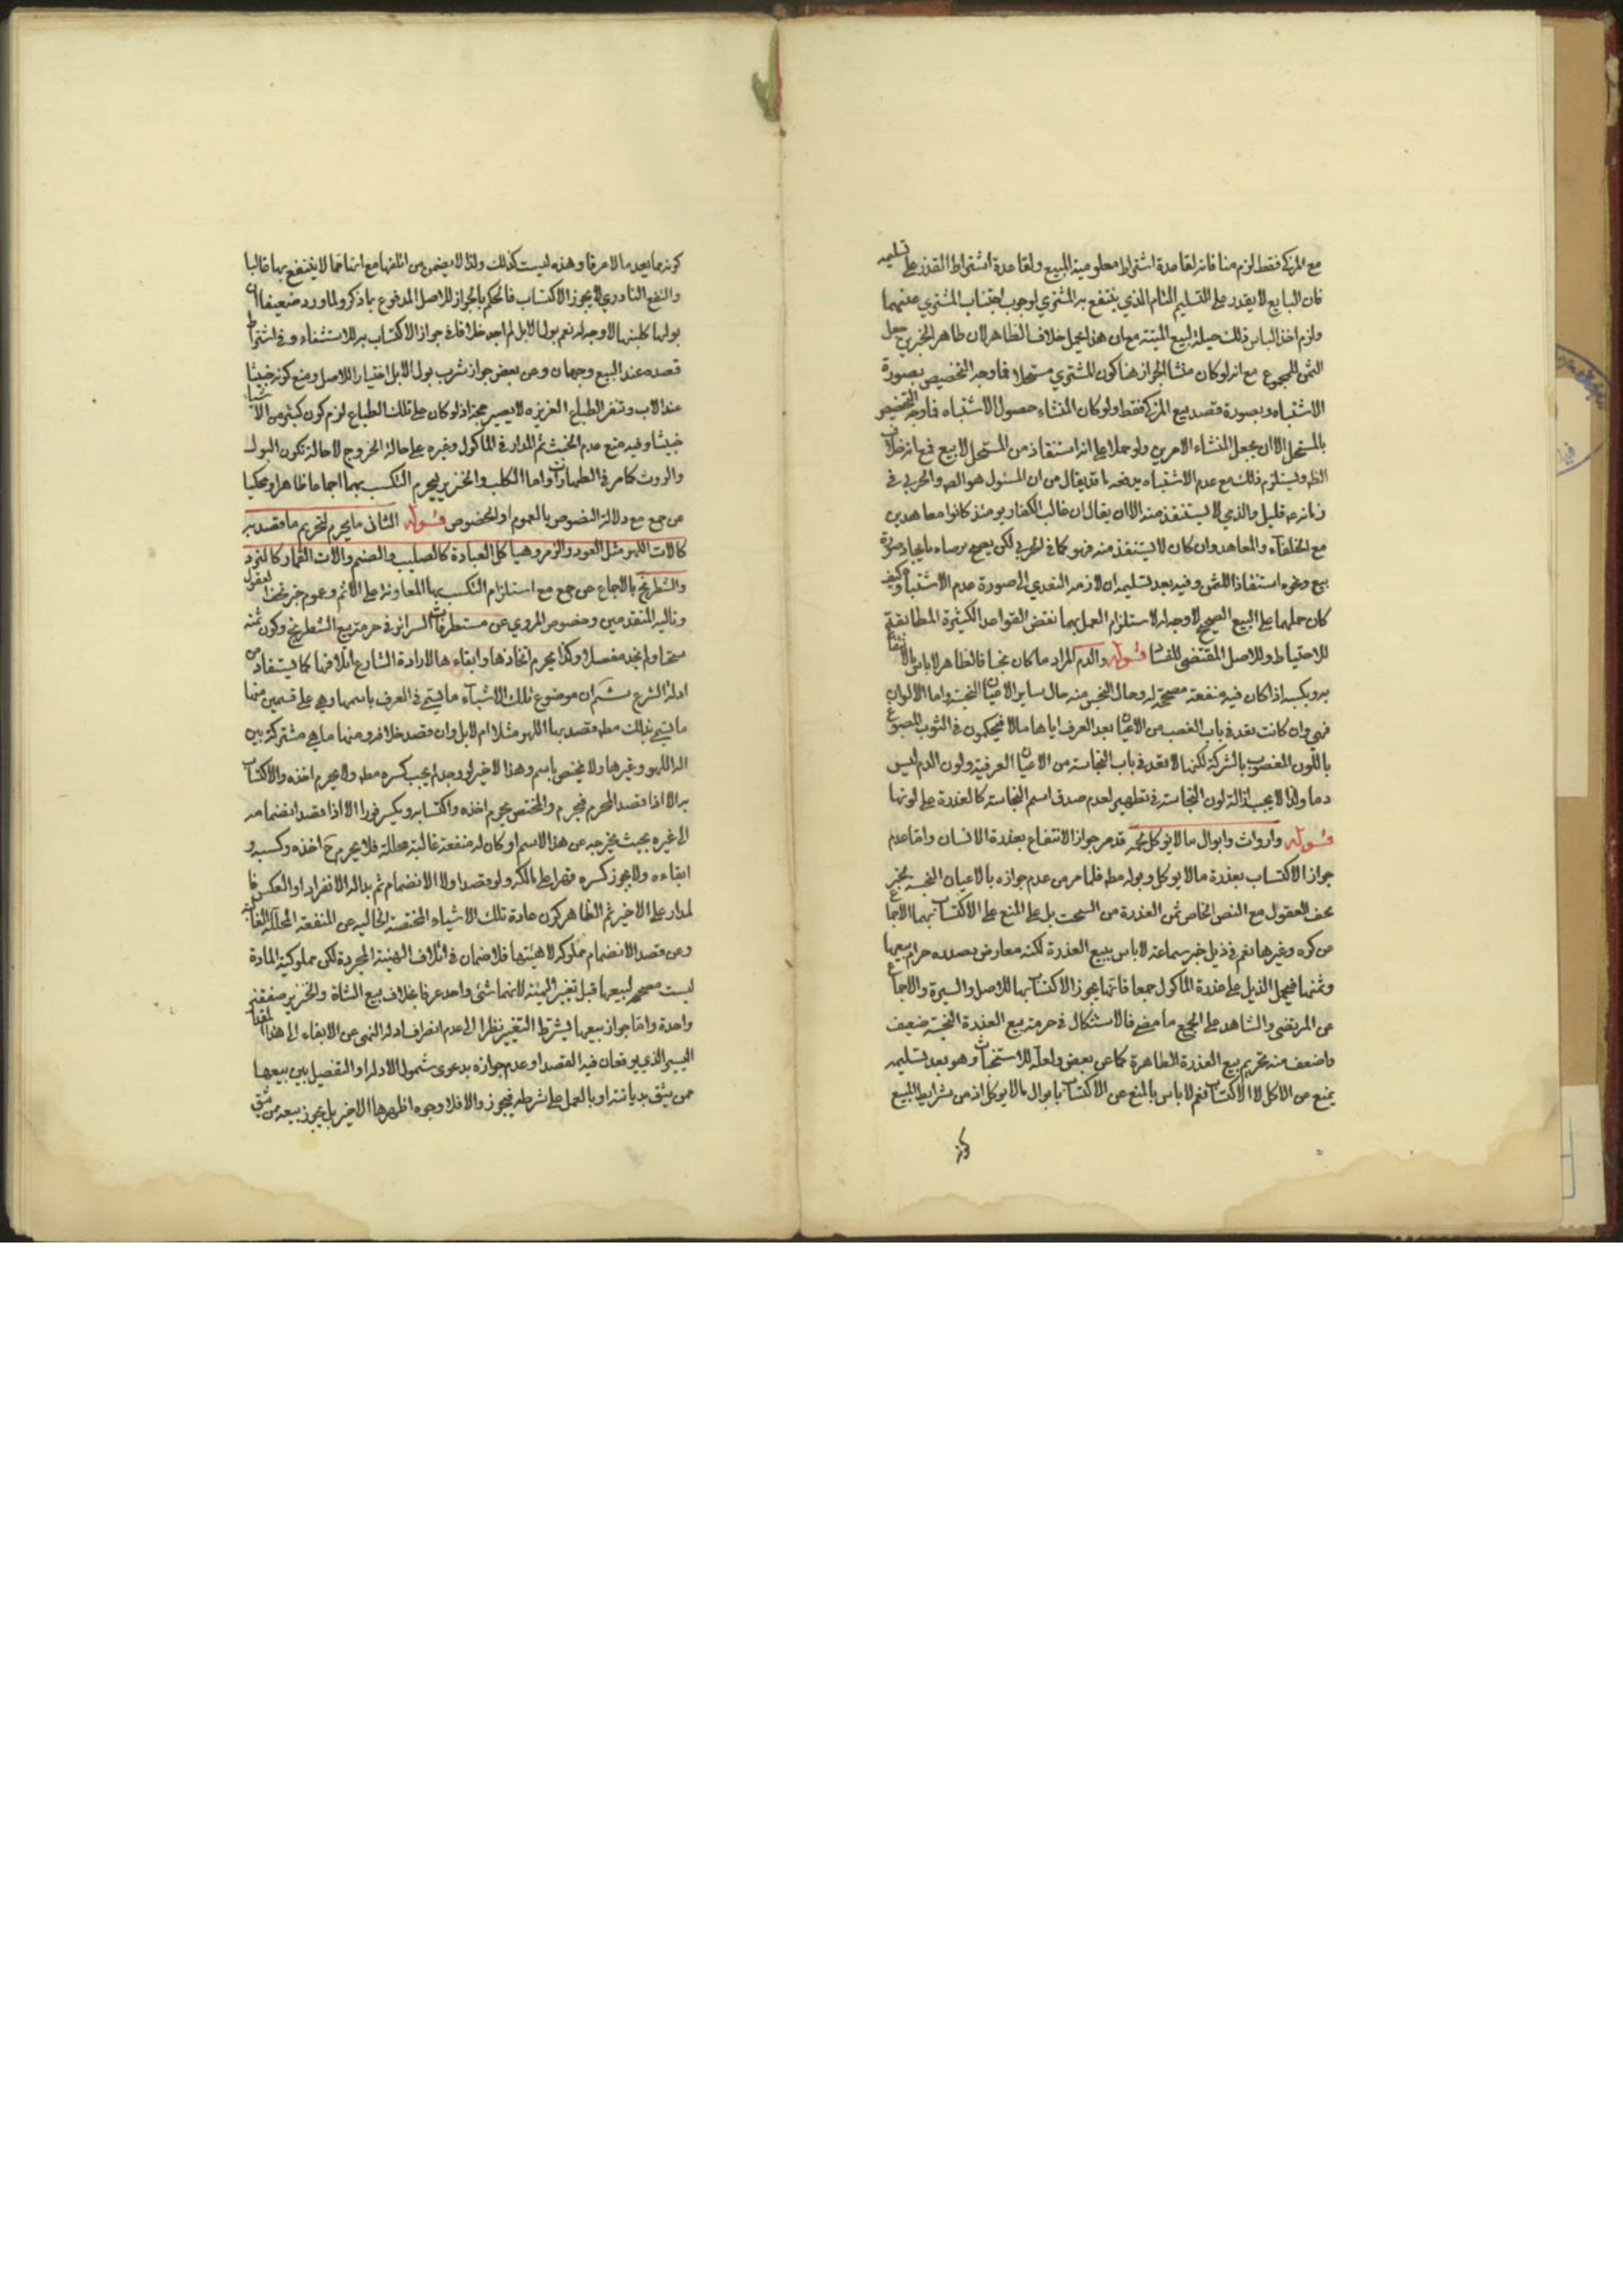 مع المزكى فقط لزم منافاته لقاعدة اشتراط معلومية المبيع ولقاعدة اشتراط القدرة على تسليمه
فان البايع لا يقدر على التسليم التام الذي ينتفع به المشتري لوجوب اجتناب المشتري عنهما
ولزم اخذ الباس ذلك حيلة لبيع الميتة مع ان هذا الحمل خلاف الظاهر لان ظاهر الخبرين جعل
الثمن للمجموع مع انه لو كان منشأ الجواز هنا كون المشتري مستحلا فما وجه التخصيص بصورة
الاشتباه وبصورة قصد بيع المزكى فقط ولو كان المنشاء حصول الاشتباه فما وجه التخصيص
بالمستحل الا ان يجعل المنشاء الامرين ولو حملا على انه استنقاذ من المستحل لا بيع فمع انه خلاف
الظ ويستلزم ذلك مع عدم الاشتباه يدفعه ما قد يقال من ان المسئول هو الص والحربي في
زمانه ع قليل والذمي لا يستنقذ منه الا ان يقال ان غالب الكفار يومئذ كانوا معاهدين
مع الخلفاء والمعاهد وان كان لا يستنقذ منه فهو كما في الحربي لكن يصح برضاه بايجاد صورة
بيع ونحوه استنقاذا للثمن وفيه بعد تسليمه ان لازمه التعدي الى صورة عدم الاشتباه وكيف
كان حملهما على البيع الصحيح لا وجه له لاستلزام العمل بهما نقض القواعد الكثيرة المطابقة
للاحتياط وللاصل المقتضي للفساد قوله والدم المراد ما كان نجسا فالظاهر لا باس بالانتفاع
به وبكسبه اذا كان فيه منفعة مصححة له وحال النجس منه حال ساير الاعيان النجسة واما الالوان
فهي وان كانت تعد في باب الغصب من الاعيان بعد العرف اياها مالا فيحكمون في الثوب المصبوغ
باللون المغصوب بالشركة لكنها لا تعد في باب النجاسة من الاعيان العرفية ولون الدم ليس
دما ولذا لا يجب ازالة لون النجاسة في تطهير لعدم صدق اسم النجاسة كالعذرة على لونها
قوله وارواث وابوال ما لا يوكل لحمه قد مر جواز الانتفاع بعذرة الانسان واما عدم
جواز الاكتساب بعذرة ما لا يوكل وبوله مط فلما مر من عدم جوازه بالاعيان النجسة بخبر
تحف العقول مع النص الخاص ثمن العذرة من السحت بل على المنع على الاكتساب بهما الاجماع
عن كره وغيرها نعم في ذيل خبر سماعة لا باس ببيع العذرة لكنه معارض بصدره حرام بيعها
وثمنها فيحمل الذيل على عذرة الماكول جمعا فانها يجوز الاكتساب بها للاصل والسيرة والاجماع
عن المرتضى والشاهد على الجمع ما مضى فالاستشكال في حرمة بيع العذرة النجسة ضعيف
واضعف منه تحريم بيع العذرة الطاهرة كما عن بعض ولعله للاستخباث وهو بعد تسليمه
يمنع من الاكل لا الاكتساب نعم لا باس بالمنع عن الاكتساب بابوال ما لا يوكل اذ من شرايط المبيع
كونه
كونه مما يعد مالا عرفا وهذه ليست كذلك ولذا لا يضمن من اتلفها مع انها مما لا ينتفع بها غالبا
والنفع النادر لا يجوز الاكتساب فالحكم بالجواز للاصل المدفوع بما ذكر ولما ورد ضعيفا ان
بولها كلبنها لا وجه له نعم بول الابل لم اجد خلافا في جواز الاكتساب به للاستشفاء وفي اشتراط
قصده عند البيع وجهان وعن بعض جواز شرب بول الابل اختيارا للاصل ومنع كونه خبيثا
عند الاب وتنفر الطباع الغريزه لا يصير حجة اذ لو كان على تلك الطباع لزم كون كثير من الاشياء
خبيثا وفيه منع عدم الخبث ثم المدار في الماكول وغيره على حالة الخروج لا حالة تكون البول
والروث كما مر في الطهارات واما الكلب والخنزير فيحرم التكسب بهما اجماعا ظاهرا ومحكيا
عن جمع مع دلالة النصوص بالعموم او الخصوص قوله الثاني ما يحرم لتحريم ما قصد به
كالات اللهو مثل العود والزمر وهياكل العبادة كالصليب والصنم والات القمار كالنرد
والشطرنج بالاجماع عن جمع مع استلزام التكسب بها المعاونة على الاثم وعموم خبر تحف العقول
وتاليه المتقدمين وخصوص المروي عن مستطرفات السرائر في حرمة بيع الشطرنج وكون ثمنه
سحتا ولم نجد مفصلا وكذا يحرم اتخاذها وابقاءها لارادة الشارع اتلافها كما يستفاد من
ادلة الشرع ثم ان موضوع تلك الاشياء ما يسمى في العرف باسمها وهي على قسمين منها
ما يسمى بذلك مط قصد بها اللهو مثلا ام لا بل وان قصد خلافه ومنها ما هي مشتركة بين
الة اللهو وغيرها ولا يختص باسم وهذا الاخير لو وجد لم يجب كسره مط ولا يحرم اخذه والاكتساب
به الا اذا قصد المحرم فيحرم والمختص يحرم اخذه واكتسابه ويكسر فورا الا اذا قصد انضمامه
الى غيره بحيث يخرجه عن هذا الاسم او كان له منفعة غالبة محللة فلا يحرم ح اخذه وكسبه و
ابقاءه ولا يجوز كسره قهرا على مالكه ولو قصد اولا الانضمام ثم بدا له الانفراد او العكس فا
لمدار على الاخير ثم الظاهر كون مادة تلك الاشياء المختصة الخالية عن المنفعة المحللة الغالبة
وعن قصد الانضمام مملوكة لا هيئتها فلا ضمان في اتلاف الهيئة المجردة لكن مملوكية المادة
ليست مصححة لبيعها قبل تغيير الهيئة لانهما شئ واحد عرفا بخلاف بيع الشاة والخنزير صفقة
واحدة واما جواز بيعها بشرط التغيير نظرا الى عدم انصراف ادلة النهي عن الابقاء الى هذا المقدار
اليسير الذي يوقعان فيه القصد او عدم جوازه بدعوى شمول الادلة او التفصيل بين بيعها
ممن يثق بديانته او بالعمل على شرطه فيجوز والا فلا وجوه اظهرها الاخير بل يجوز بيعه من يثق